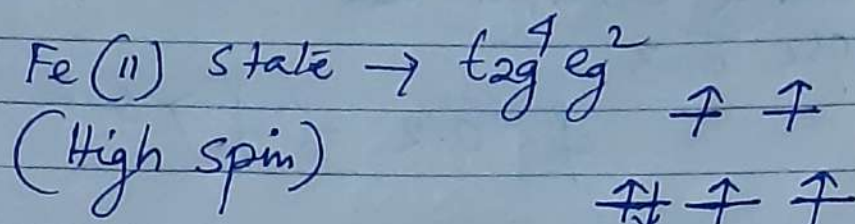 Fe (11) state → t2g⁴ eg²
(High spin)